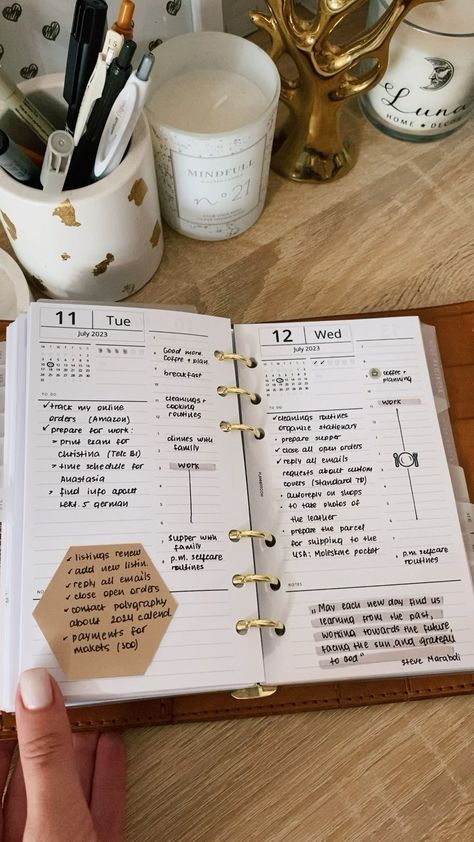 MINDFULL
nº 21
Luna
HOME DECOR
11 Tue
July 2023
TO DO
✓ track my online
orders (Amazon)
✓ prepare for work:
▹ print exam for
Christina (Tele B1)
▹ time schedule for
Anastasia
▹ find info about
lekt. 5 german
Good more.
coffee + plan.
breakfast
cleanings +
cooking
routines
dinner with
family
WORK
supper with
family
p.m. selfcare
routines
NOTES
✓ listings renew
✓ add new listin.
✓ reply all emails
✓ close open orders
✓ contact polygraphy
about 2024 calend.
✓ payments for
makets (300)
12 Wed
July 2023
TO DO
✓ cleanings routines
• organize stationary
• prepare supper
✓ close all open orders
✓ reply all emails
requests about custom
covers (standard TB)
• autoreply on shops
• to take photos of
the leather
• prepare the parcel
for shipping to the
USA: Moleskine pocket
coffee +
planning
WORK
• p.m. selfcare
routines
NOTES
"May each new day find us
learning from the past,
working towards the future,
facing the sun and grateful
to God"
Steve Maraboli